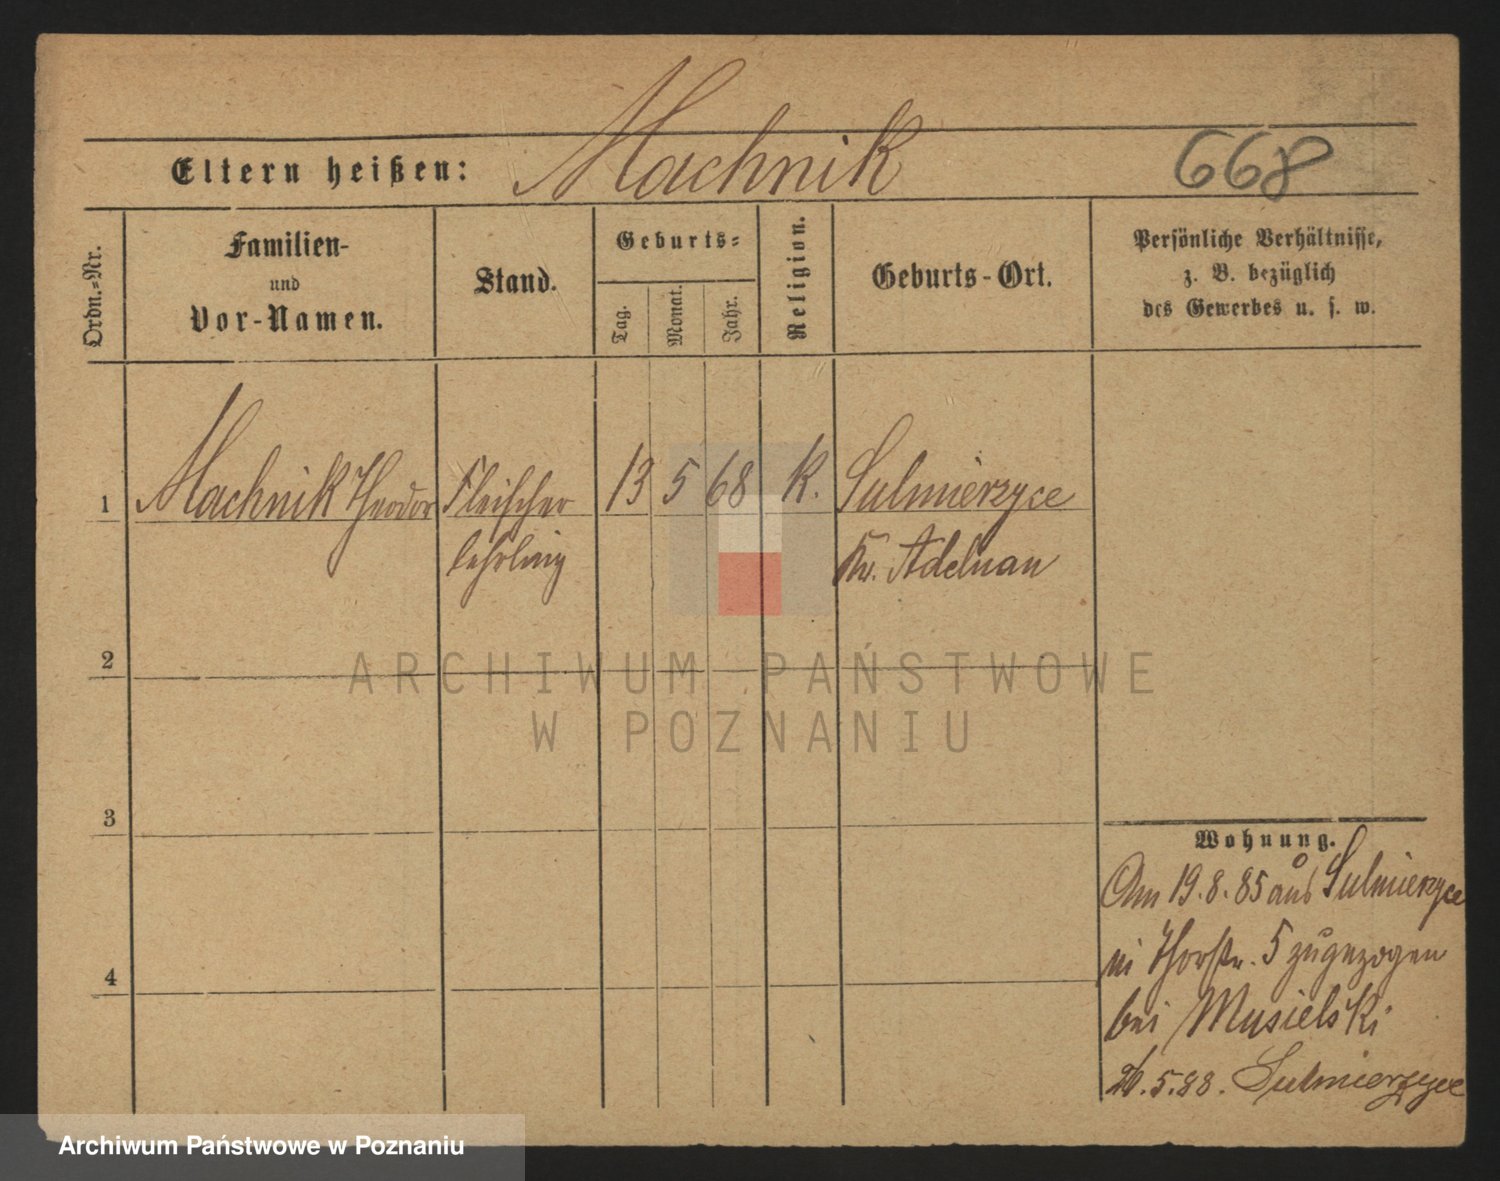 Machnik
Eltern heißen:
668
Ordn.-Nr.
Familien-
und
Vor-Namen.
Stand.
Geburts-
Tag.
Monat.
Jahr.
Religion.
Geburts-Ort.
Persönliche Verhältnisse,
z. B. bezüglich
des Gewerbes u. s. w.
1
Machnik Theodor
Fleischer
lehrling
13
5
68
k.
Sulmierzyce
Kr. Adelnau
2
3
4
Wohnung.
Am 19.8.85 aus Sulmierzyce
in Thorstr. 5 zugezogen
bei Musielski
26.5.88. Sulmierzyce
ARCHIWUM PAŃSTWOWE
W POZNANIU
Archiwum Państwowe w Poznaniu